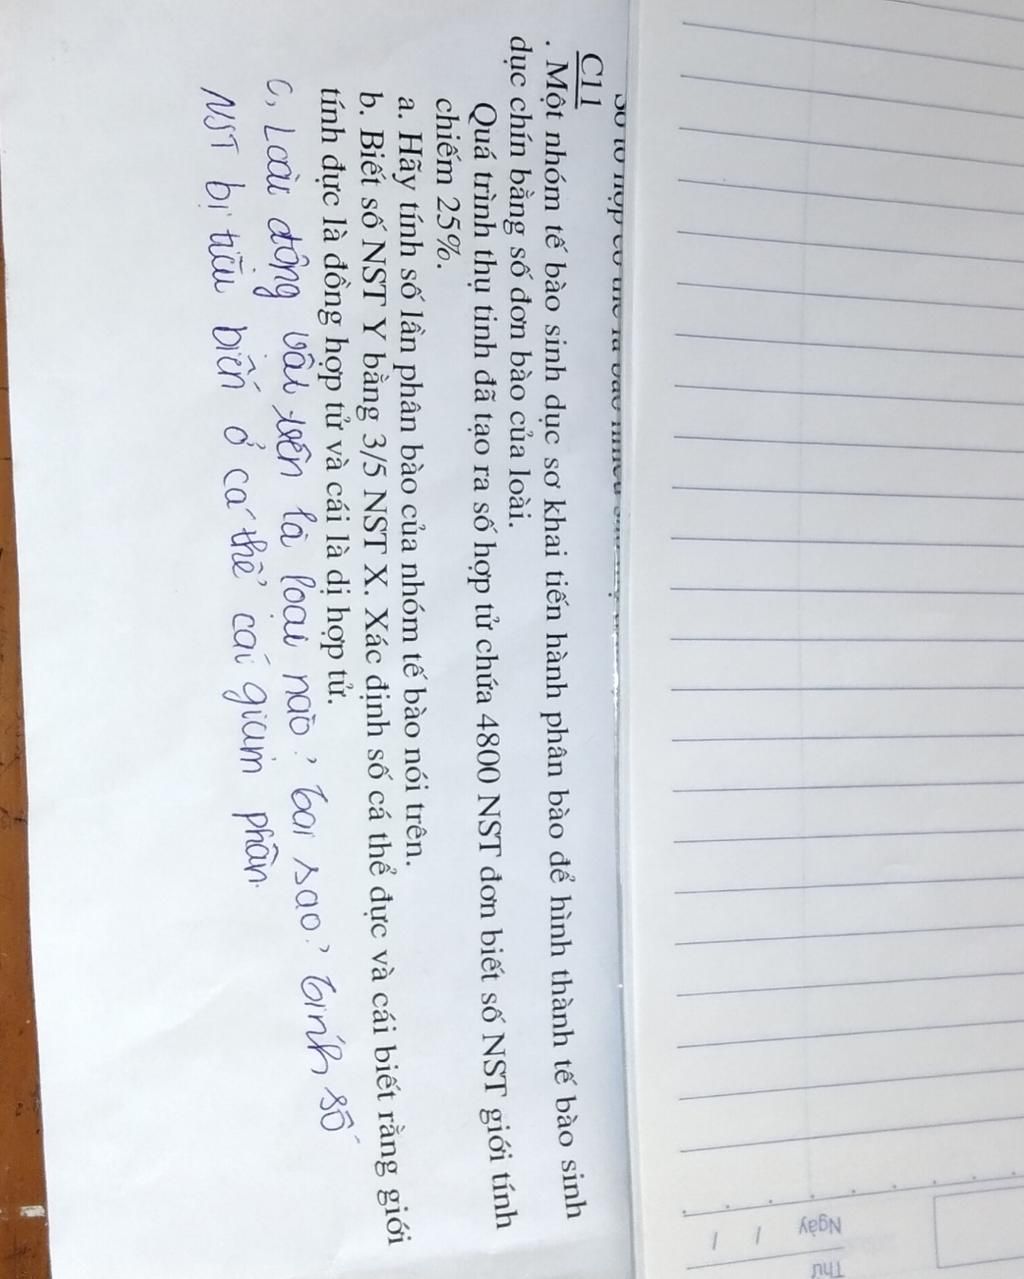 C11
. Một nhóm tế bào sinh dục sơ khai tiến hành phân bào để hình thành tế bào sinh
dục chín bằng số đơn bào của loài.
Quá trình thụ tinh đã tạo ra số hợp tử chứa 4800 NST đơn biết số NST giới tính
chiếm 25%.
a. Hãy tính số lần phân bào của nhóm tế bào nói trên.
b. Biết số NST Y bằng 3/5 NST X. Xác định số cá thể đực và cái biết rằng giới
tính đực là đồng hợp tử và cái là dị hợp tử.
c, Loài động vật trên là loại nào? tại sao? tính số
NST bị tiêu biến ở cá thể cái giảm phân.
Ngày
Thứ